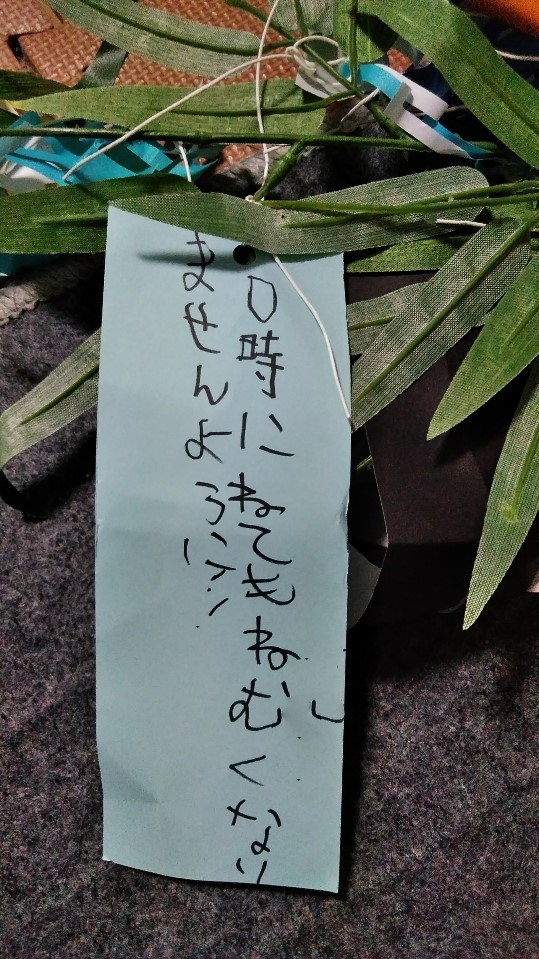 0時にねてもねむくなり
ませんように